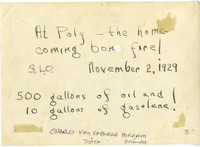 At Poly — the home
coming bon fire!
S.L.O. November 2, 1929
500 gallons of oil and
10 gallons of gasolene!